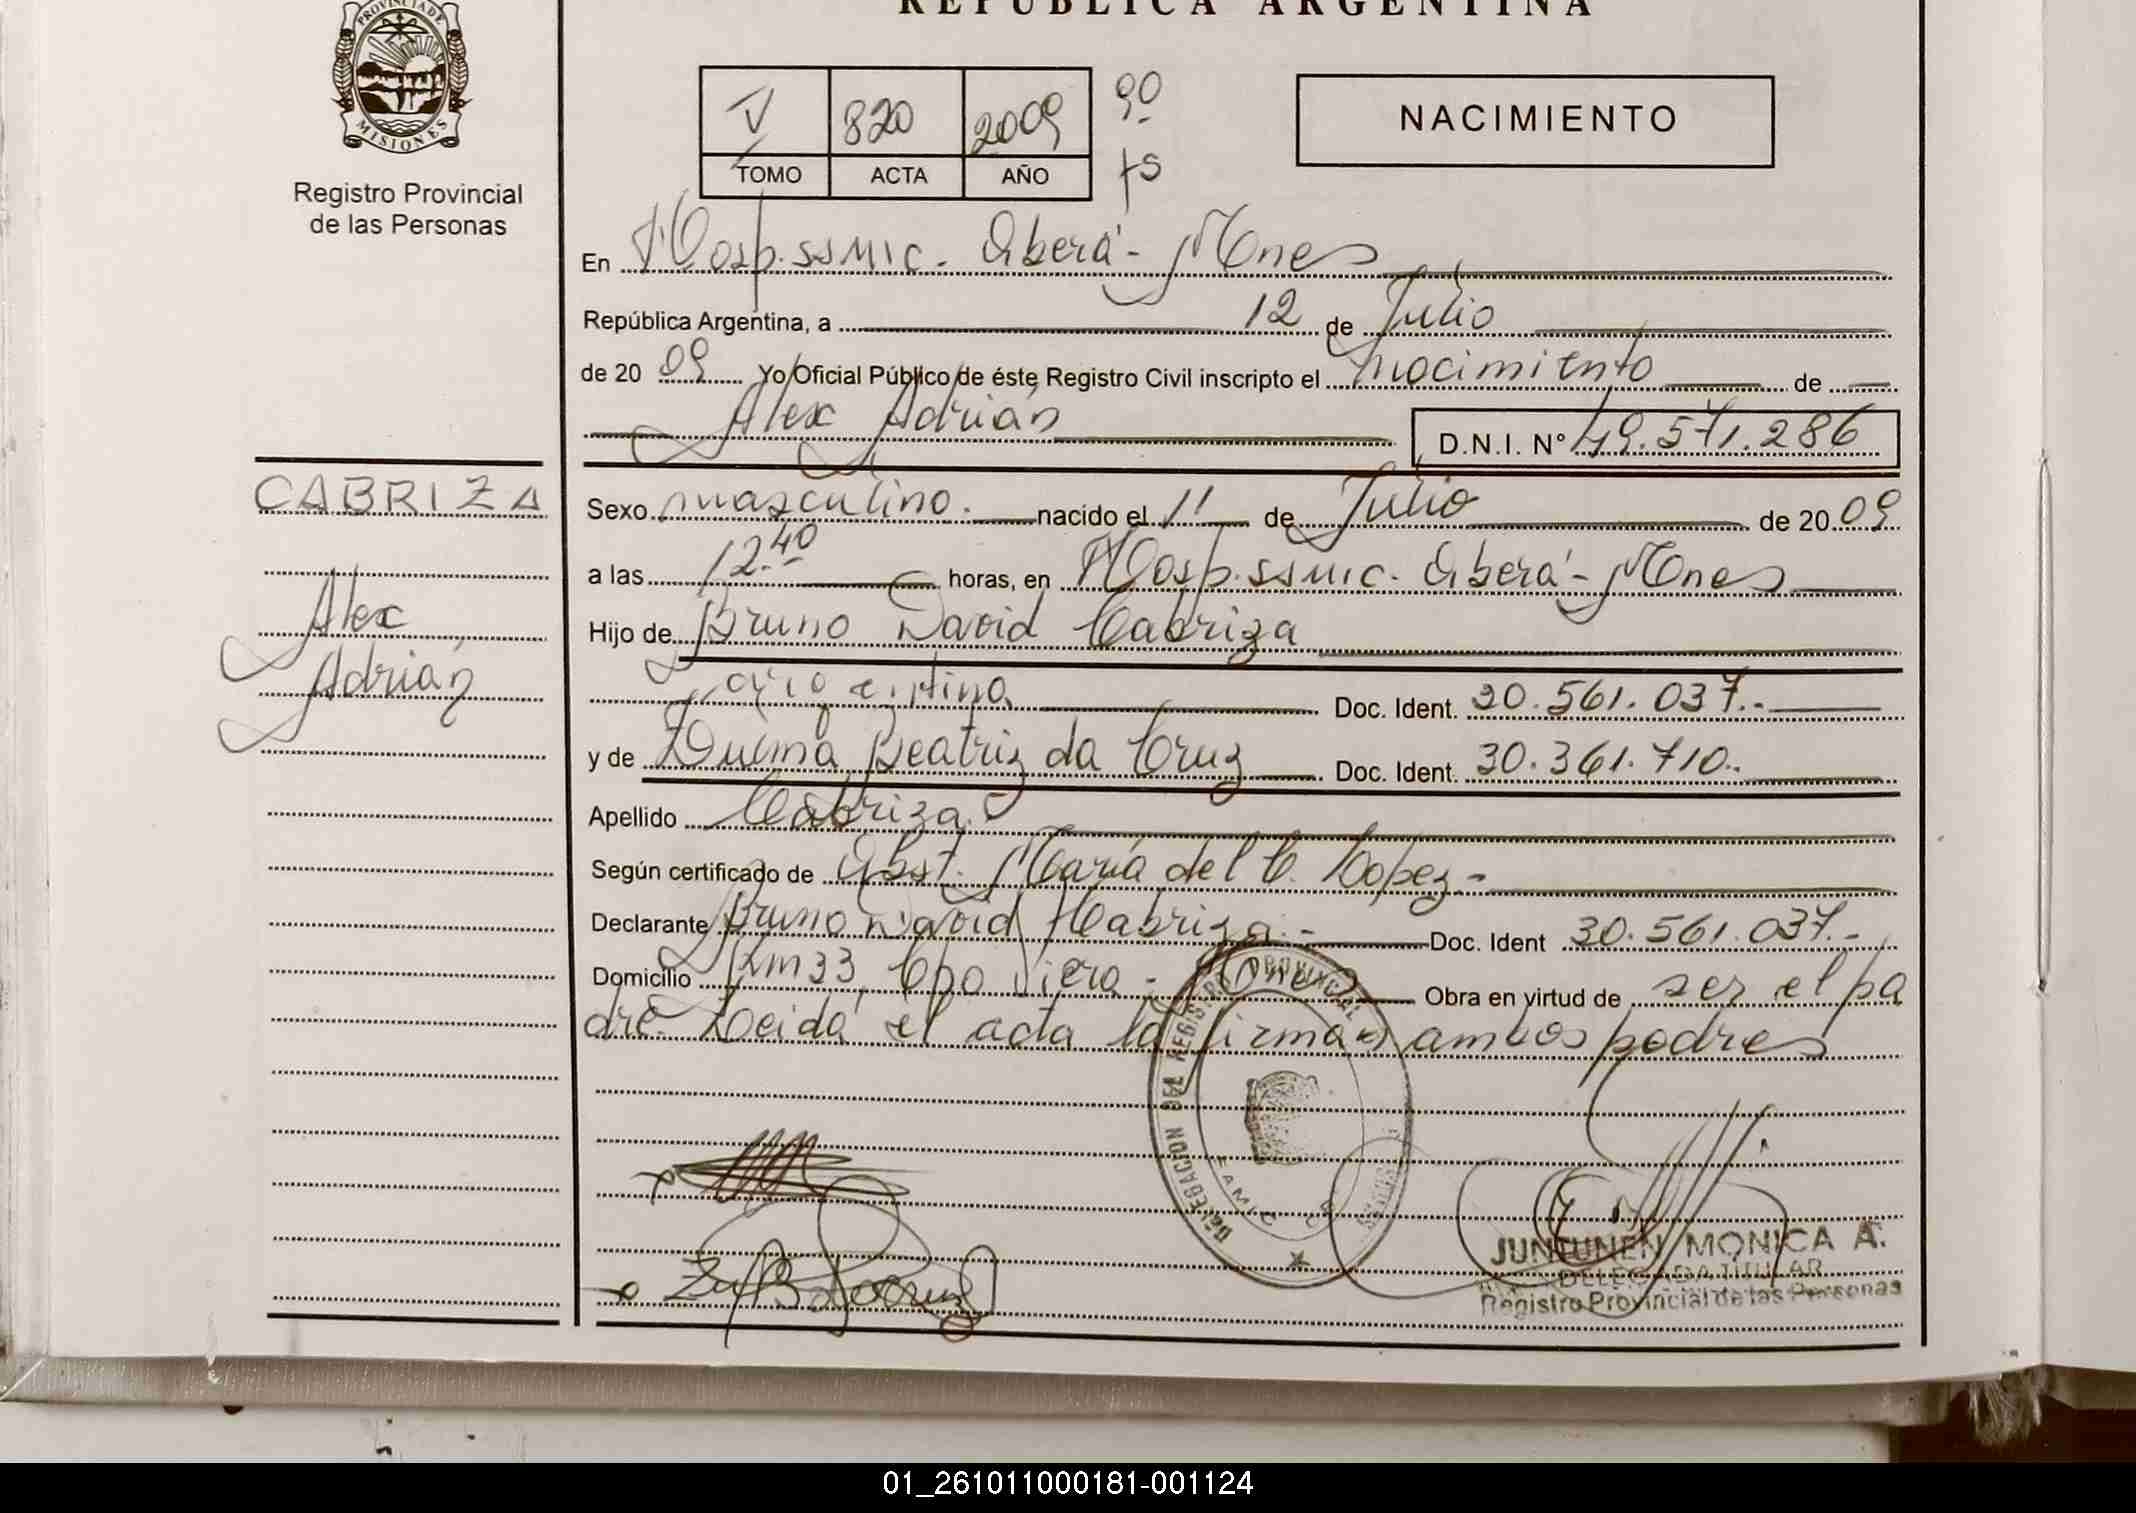 REPUBLICA ARGENTINA
PROVINCIA DE
MISIONES
Registro Provincial
de las Personas
V 820 2009 90
TOMO ACTA AÑO fs
NACIMIENTO
En Hosp. SSMIC. Oberá - Mnes
República Argentina, a 12 de Julio
de 2009 Yo Oficial Público de éste Registro Civil inscripto el nacimiento de
Alex Adrián D.N.I. N° 49.571.286
CABRIZA
Alex
Adrián
Sexo masculino. nacido el 11 de Julio de 2009
a las 12.40 horas, en Hosp. SSMIC. Oberá - Mnes
Hijo de Bruno David Cabriza
argentina Doc. Ident. 30.561.037.-
y de Beatriz da Cruz Doc. Ident. 30.361.710.-
Apellido Cabriza.-
Según certificado de Obst. María del C. Lopez -
Declarante Bruno David Cabriza.- Doc. Ident 30.561.037.-
Domicilio Km 33, Cpo Viera - Mnes Obra en virtud de ser el pa
dre. Leida el acta la firman ambos padres
DELEGACION DEL REGISTRO PROVINCIAL
JUNTUNEN MONICA A.
DELEGADA TITULAR
Registro Provincial de las Personas
01_261011000181-001124